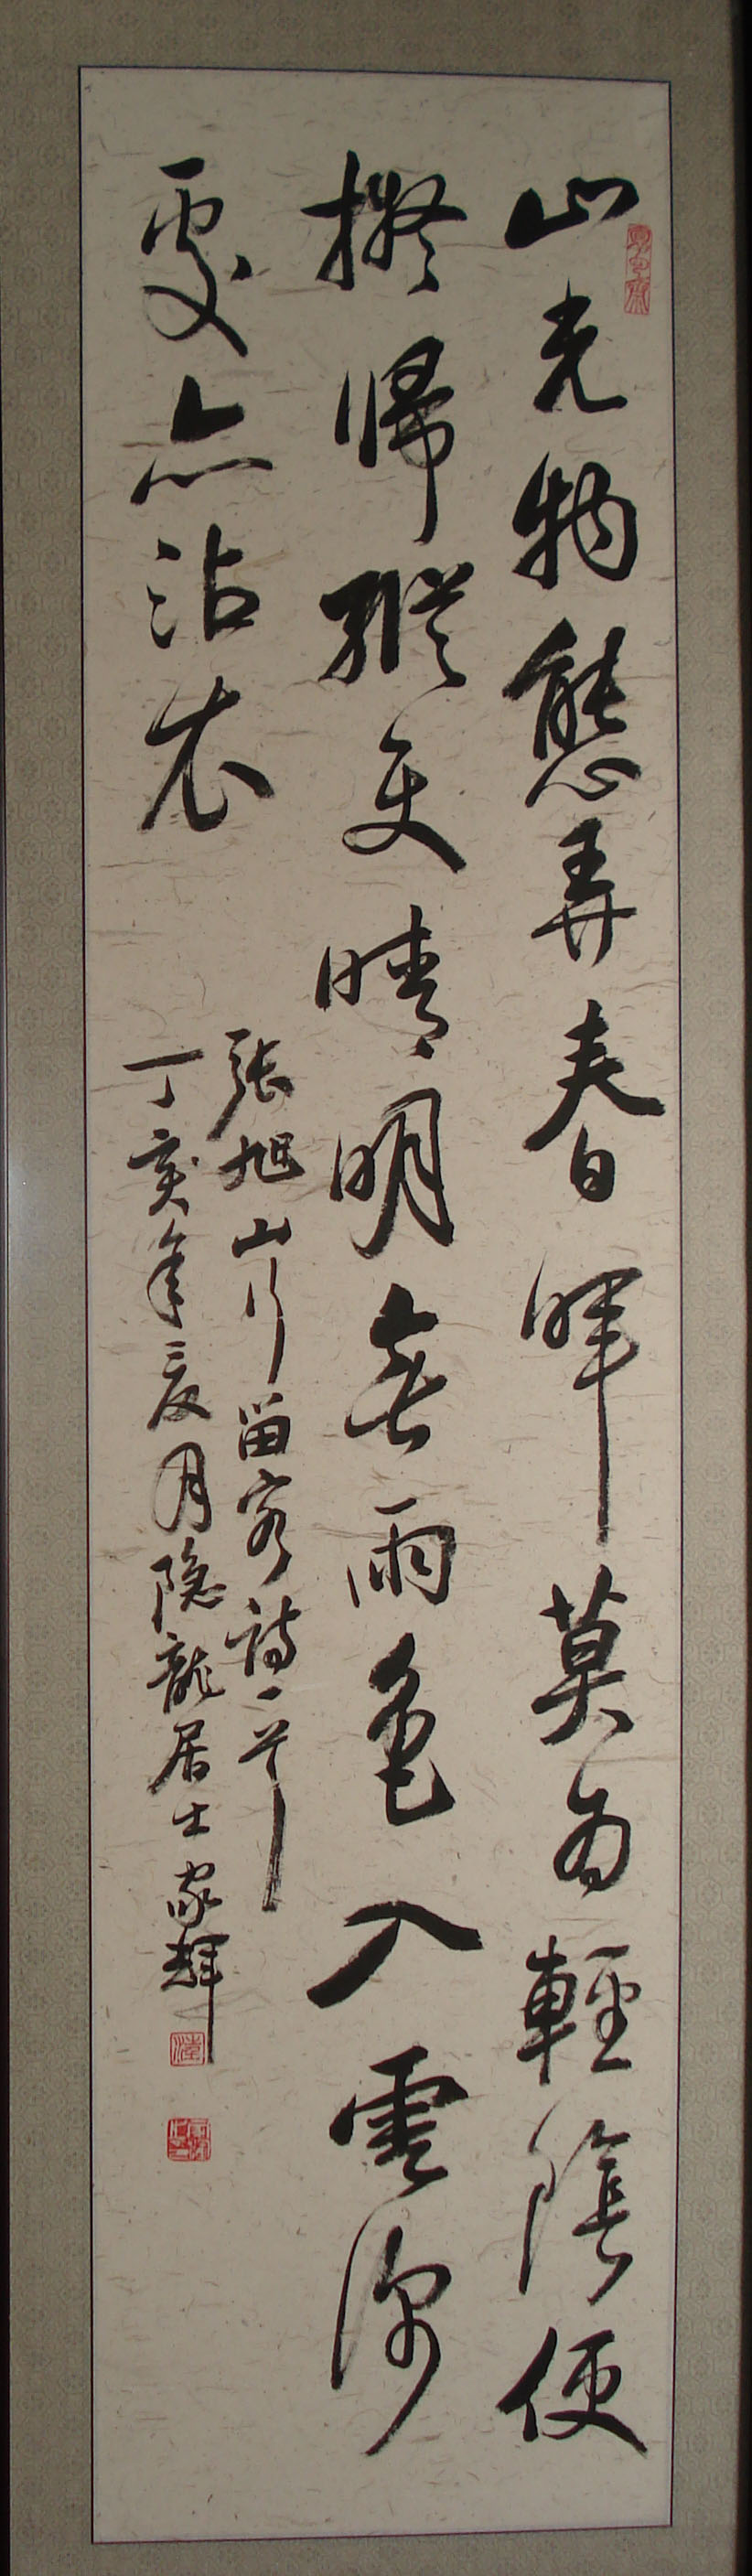 山光物態弄春暉莫為輕陰便
擬歸縱使晴明無雨色入雲深
處亦沾衣
張旭山行留客詩一首
丁亥年夏月隐龍居士家輝